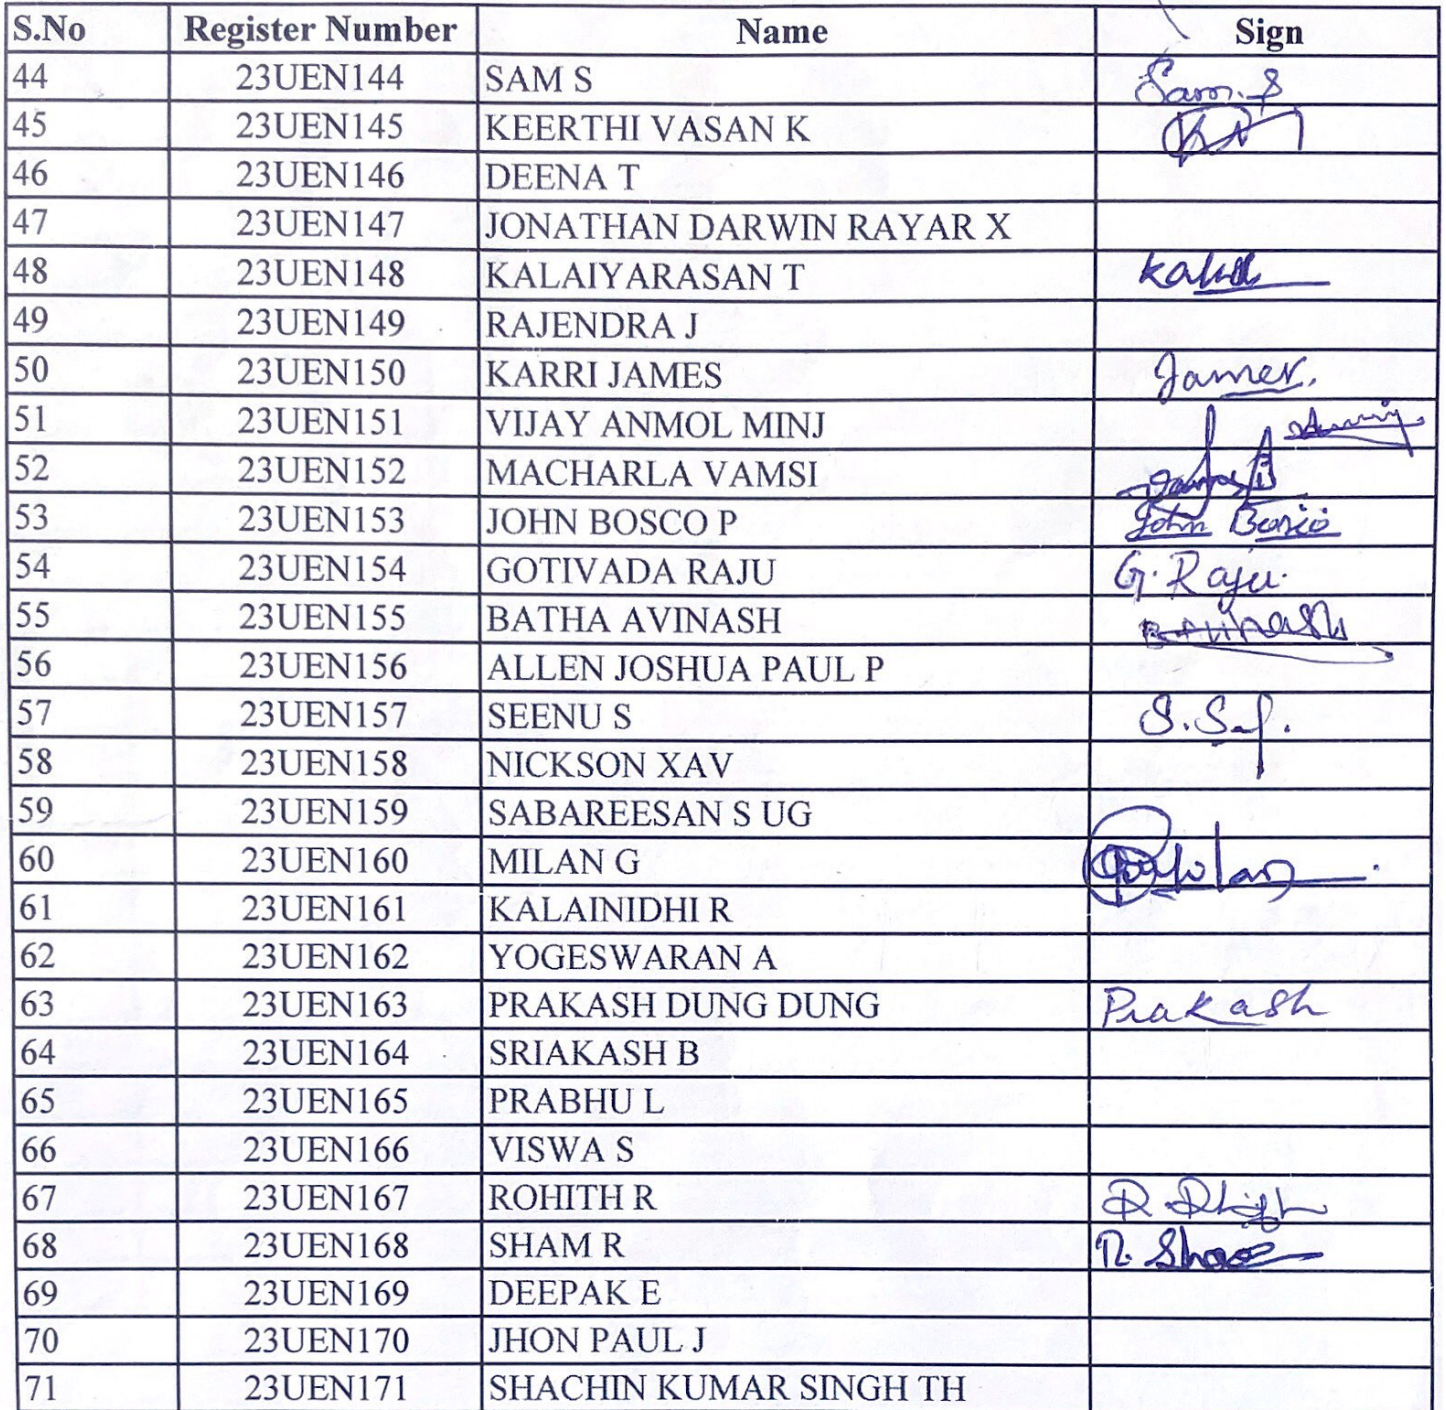 S.No Register Number Name Sign
44 23UEN144 SAM S Sam. S
45 23UEN145 KEERTHI VASAN K
46 23UEN146 DEENA T
47 23UEN147 JONATHAN DARWIN RAYAR X
48 23UEN148 KALAIYARASAN T
49 23UEN149 RAJENDRA J
50 23UEN150 KARRI JAMES James.
51 23UEN151 VIJAY ANMOL MINJ
52 23UEN152 MACHARLA VAMSI
53 23UEN153 JOHN BOSCO P John Bosco
54 23UEN154 GOTIVADA RAJU G. Raju.
55 23UEN155 BATHA AVINASH B Avinash
56 23UEN156 ALLEN JOSHUA PAUL P
57 23UEN157 SEENU S
58 23UEN158 NICKSON XAV
59 23UEN159 SABAREESAN S UG
60 23UEN160 MILAN G
61 23UEN161 KALAINIDHI R
62 23UEN162 YOGESWARAN A
63 23UEN163 PRAKASH DUNG DUNG Prakash
64 23UEN164 SRIAKASH B
65 23UEN165 PRABHU L
66 23UEN166 VISWA S
67 23UEN167 ROHITH R
68 23UEN168 SHAM R
69 23UEN169 DEEPAK E
70 23UEN170 JHON PAUL J
71 23UEN171 SHACHIN KUMAR SINGH TH